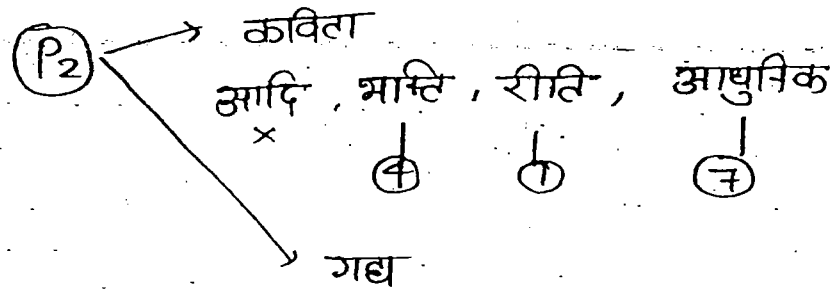 P2 → कविता
आदि, भक्ति, रीति, आधुनिक
× ④ ① ⑦
गद्य